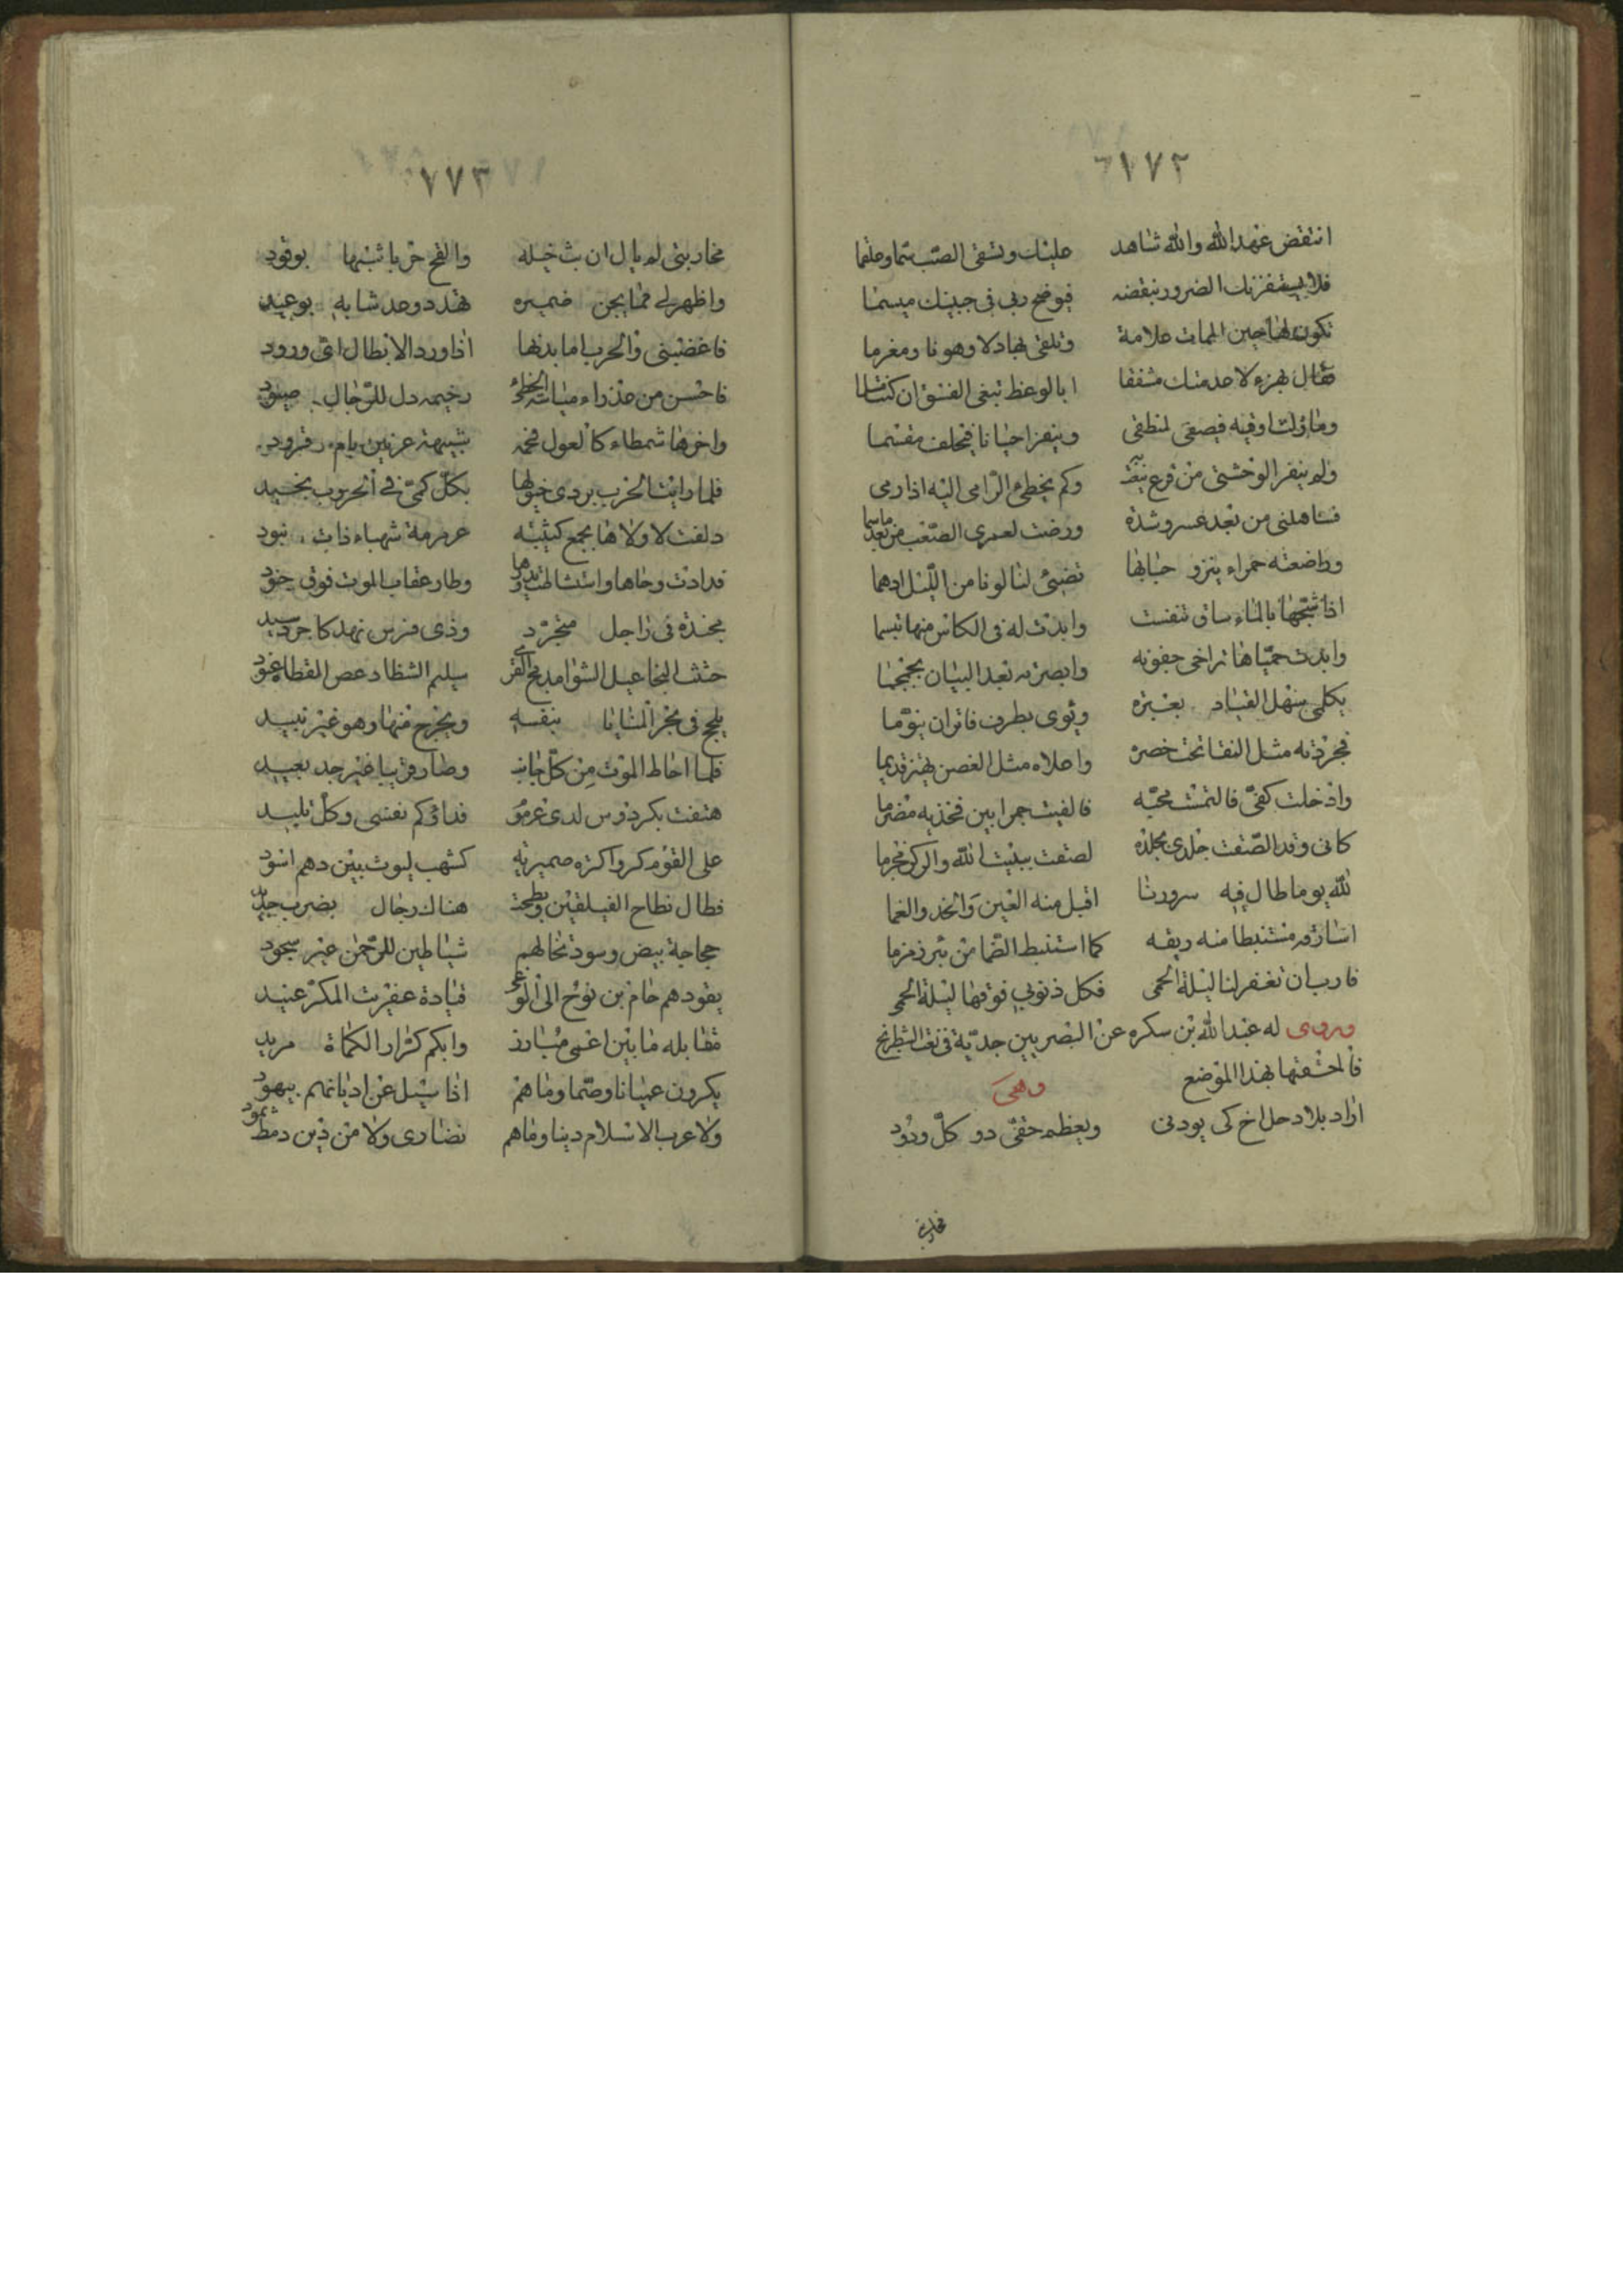 ١٧٢
اتنقض عهد الله والله شاهد عليك وتسقى الصب سما وعلقما
فلا يستفزنك الضرور بنقضه فيوضح ربى فى جبينك ميسما
تكون لها حين الممات علامة وتلقى بها ذلا وهونا ومغرما
فقال بهزء لا عدمتك مشفقا ابالوعظ تبغى الفسق ان كنت
وما زلت اوفيه فيصغى لمنطقى وينفر احيانا فيحلف مقسما
ولم ينفر الوحشى من قرع وكم يخطئ الرامى اليه اذا رمى
فساهلنى من بعد عسر وشدة ورضت لعمرى الصعب من بعد ما سما
وراضعته حمراء ينزو حبابها تضيئ لنا لونا من الليل ادهما
اذا شجها بالماء ساق تنفست وابدت له فى الكاس منها تبسما
وابدت حمياها تراخى جفونه وابصرته بعد البيان مجمجما
يكلمى سهل القياد بغيره ويومى بطرف فاتر ان ينوما
فجردته مثل النقا تحت خصره واعلاه مثل الغصن يهتز قديما
وادخلت كفى فالتمست محبه فالفيت جمرا بين فخذيه مضرما
كانى وقد الصقت جلدى بجلده لصقت ببيت الله والركن محرما
لله يوما طال فيه سرورنا اقبل منه العين والخد والفما
اساوره مستنبطا منه ريقه كما استنبط الظما من بئر زمزما
فارب ان تغفر لنا ليلة الحمى فكل ذنوبى فوقها ليلة الحمى
وروى له عبد الله بن سكره عن البصريين جدية فى نعت الشطرنج
فالحقتها بهذا الموضع وهى
اراد بلاد حل اخ كى يودنى ويعظم حقى دو كل ودود
محاربتى
١٧٣
محاربتى لم يال ان بث خيله والقح حربا شبها بوقود
واظهر لى مما يجن ضميره تهدد وعد شابه بوعيد
فاغضبنى والحرب اما بدئها اذا ورد الابطال اى ورود
فاحسن من عذراء ميالة الخطى رخيمه دل للرجال صيود
واخرها شمطاء كالغول فخمه شبيهة عرنين بام قرود
فلما رايت الحرب بردى خيولها بكل كمى فى الحروب نجيد
دلفت لاولاها بجمع كتيبة عرمرمة شهباء ذات بنود
فدارت رحاها واستشاطت وطار عقاب الموت فوق
بجنده فى راجل متجرد وذى فرس نهد كاجرد سيد
حثث سليم الشظا
يلج فى بحر المنايا بنفسه ويخرج منها وهو غير نبيد
فلما احاط الموت من كل جانب وصار قريبا غير جد بعيد
هتفت بكردوس لدى فداؤكم نفسى وكل تليد
على القوم كروا كره كشهب ليوث بين دهم اسود
فطال نطاح الفيلقين هناك رجال بضرب
عجاجة بيض وسود تخالهم شياطين للرحمن غير سجود
يقودهم حام بن نوح الى الوغى قيادة عفريت المكر عنيد
مقابله ما بين اعمى مبارز وابكم كرار الكماة مريد
يكرون عميانا وصما وما هم اذا سيل عن اديانهم بيهود
ولا عرب الاسلام دينا وما هم نصارى ولا من دين ثمود